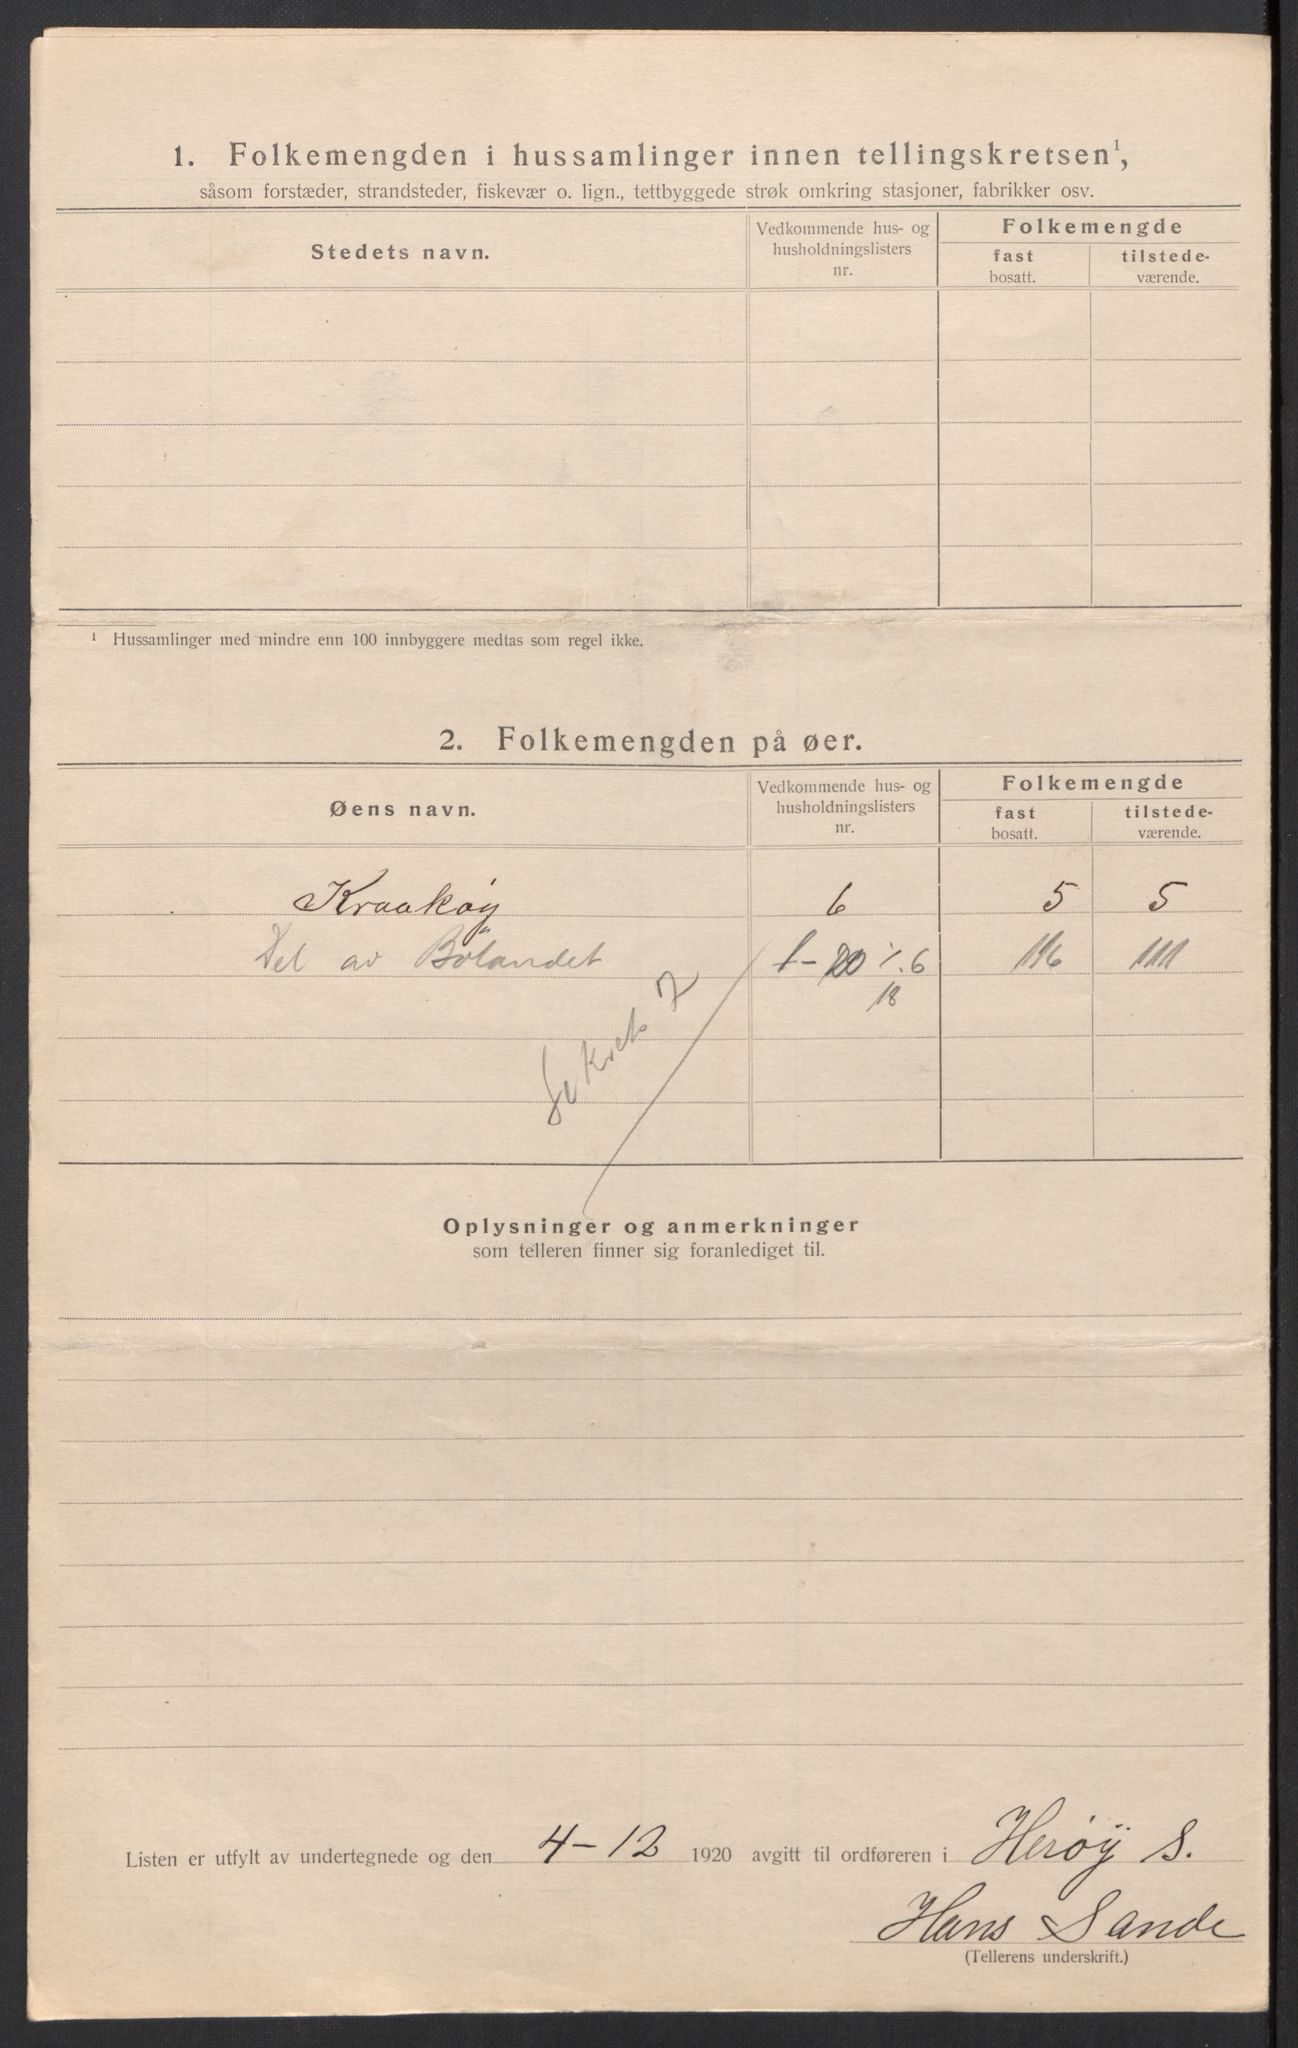 1. Folkemengden i hussamlinger innen tellingskretsen¹,
såsom forstæder, strandsteder, fiskevær o. lign., tettbyggede strøk omkring stasjoner, fabrikker osv.
Stedets navn.
Vedkommende hus- og husholdningslisters nr.
Folkemengde
fast bosatt.
tilstede-værende.
¹ Hussamlinger med mindre enn 100 innbyggere medtas som regel ikke.
2. Folkemengden på øer.
Øens navn.
Vedkommende hus- og husholdningslisters nr.
Folkemengde
fast bosatt.
tilstede-værende.
Kraakøy 6 5 5
Del av Bölandet 1-20 ⁒ 6 116 111
18
Se krets 7
Oplysninger og anmerkninger
som telleren finner sig foranlediget til.
Listen er utfylt av undertegnede og den 4-12 1920 avgitt til ordføreren i Herøÿ S.
Hans Sande
(Tellerens underskrift.)